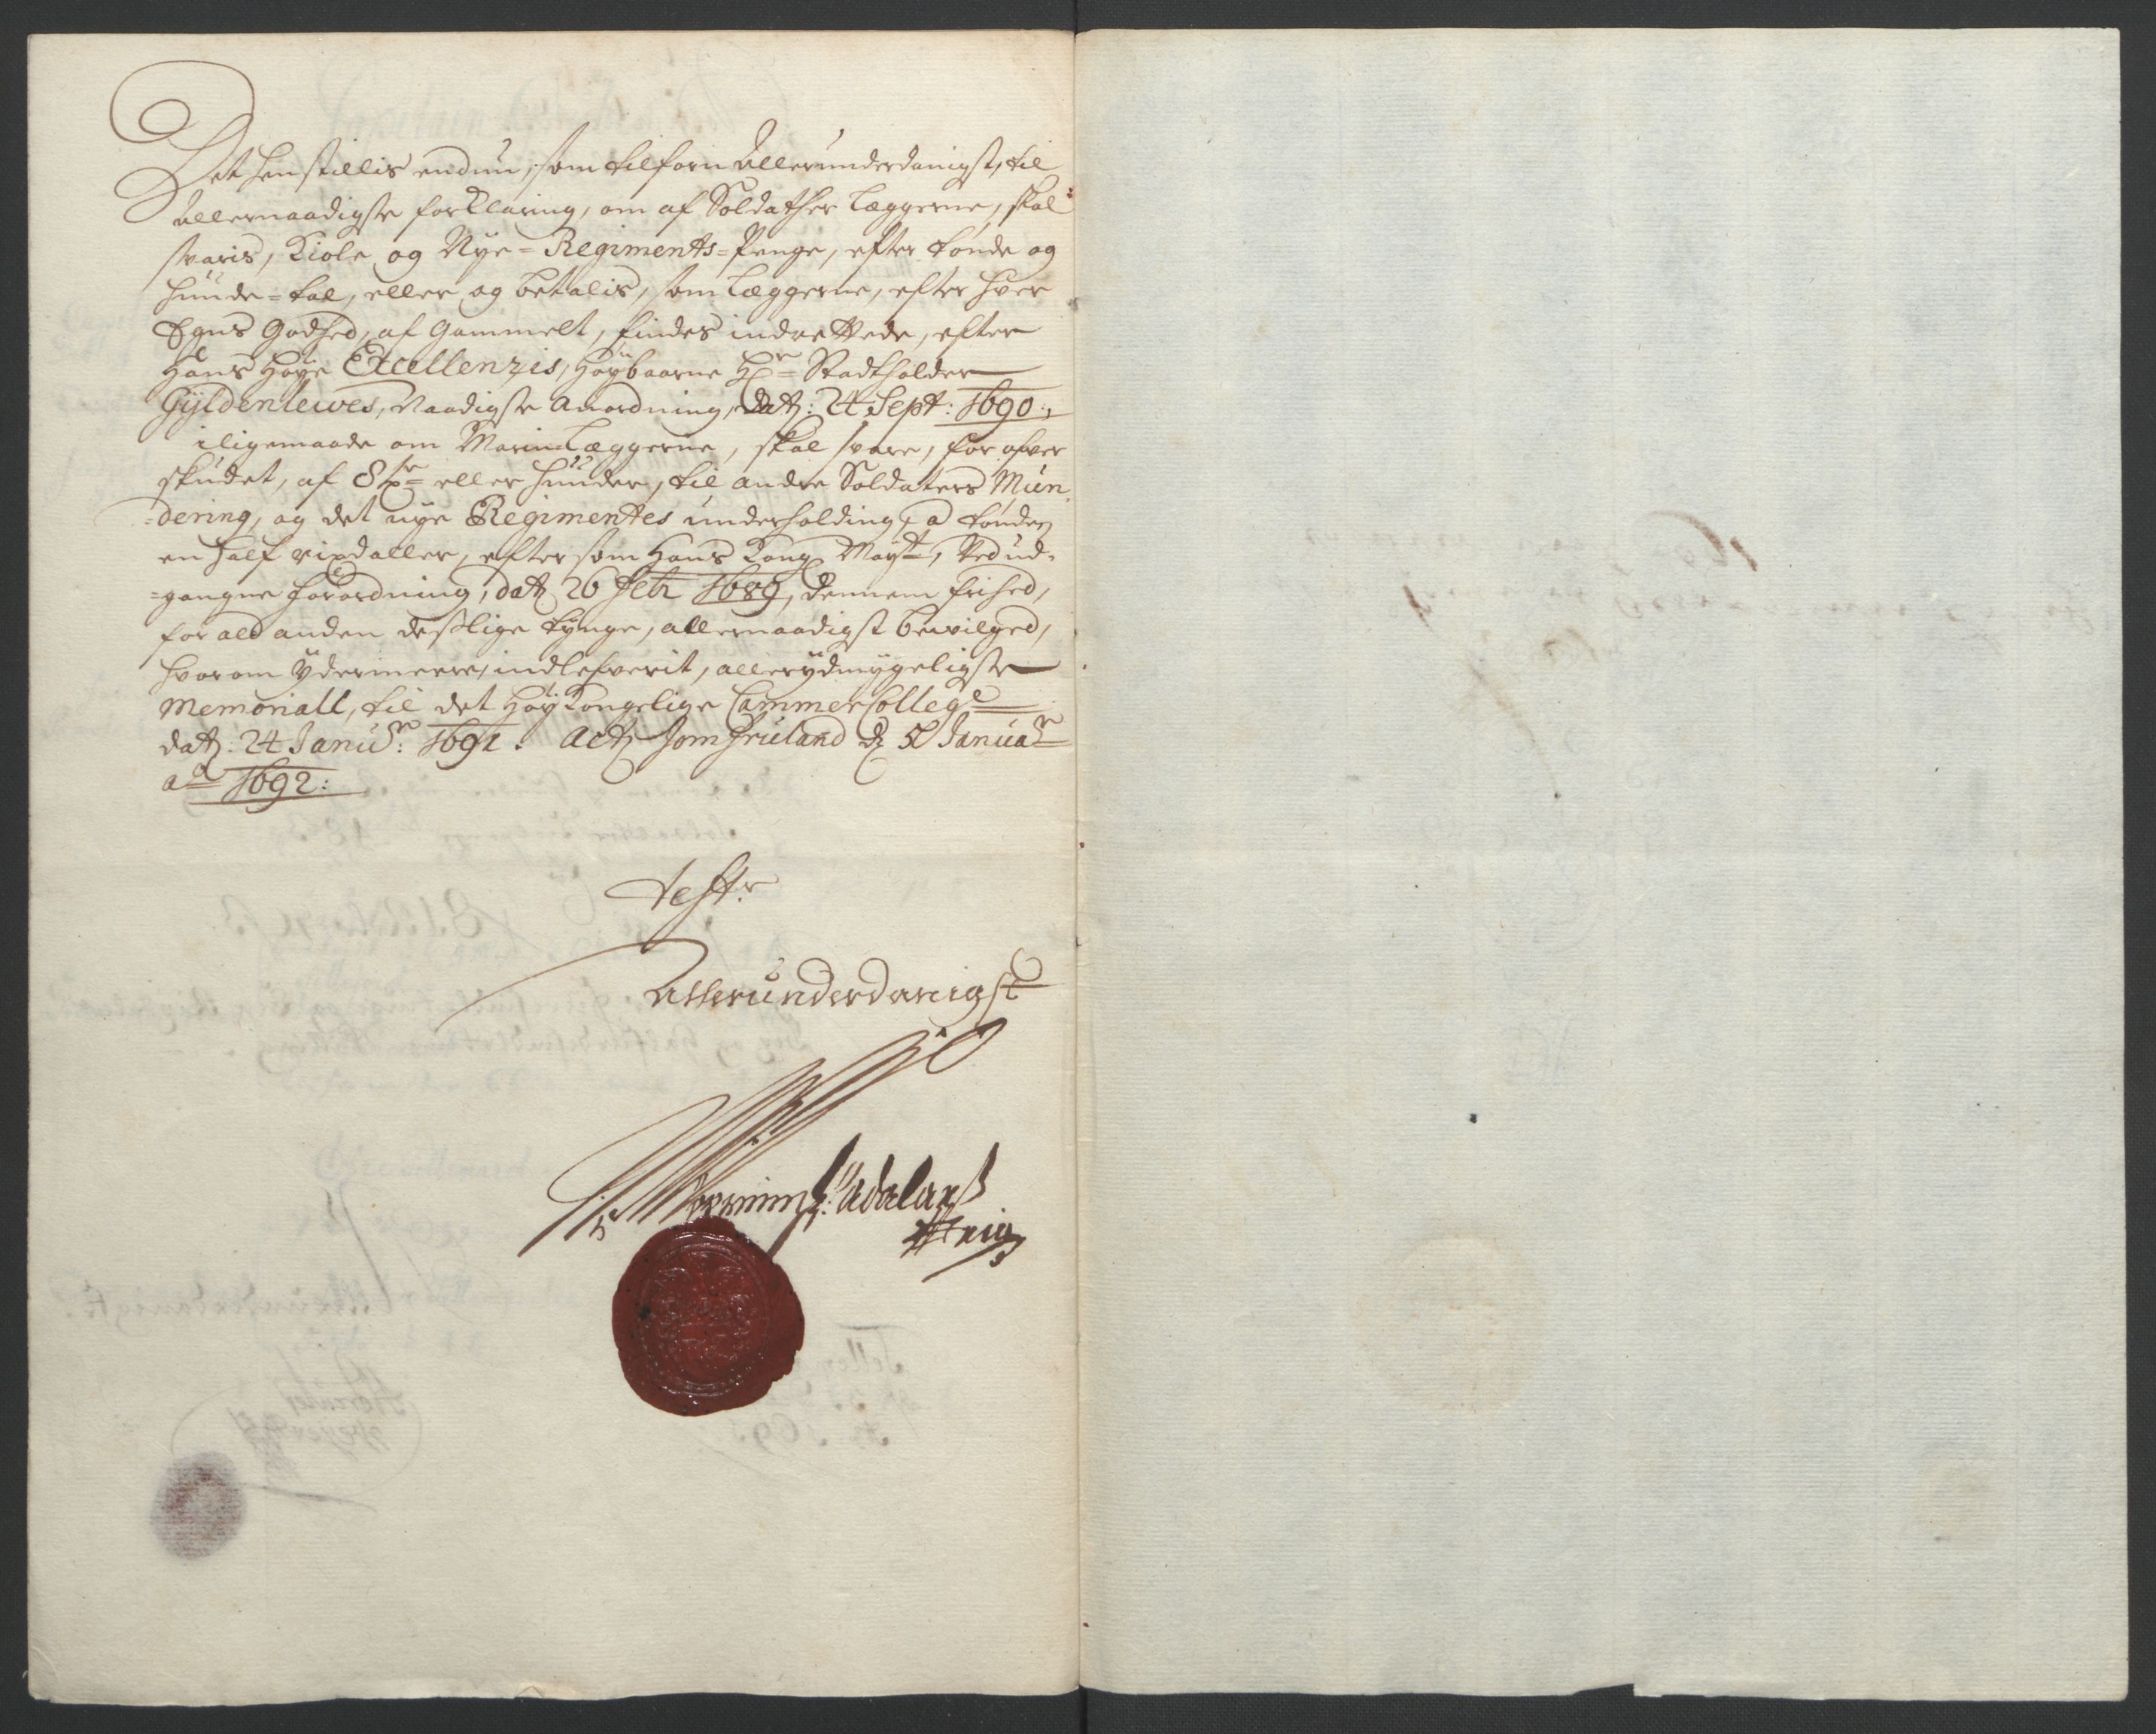 Det henstillis endnu, som tilforn allerunderdanigst, til
allernaadigste forklaring, om af Soldather Læggerne, skal
svaris, Kiole og Nye=Regiments=Penge, efter tønde og
hunde=tal, eller og betalis, som Læggerne, efter hver
Egns Godhed, af Gammelt, findes indrettede, efter
Hans Høye Excellenzis, Høybaarne Hr= Stadtholder
Gyldenlewes, Naadigste Anordning, dat: 24 Sept: 1690:,
iligemaade om MarinLæggerne, skal svare, for ofver
skudet, af 8 eller hunder, til andre Soldaters Mun
=dering, og det nye Regimentes underholding, a tønden
en half rixdaller, eftersom Hans Kong Mayst, Ved ud=
=gangne forordning, dat 26 Feb 1689, dennem frihed,
for ald anden desslige tynge, allernaadigst bevilged,
hvorom ydermeere, indlefverit, allerydmygeligste
Memoriall, til det Høy Kongelige CammerCollege
dat: 24 Janu: 1691. Act Jomfruland d 5 Janua
ao 1692:
Test:
Allerunderdanigst